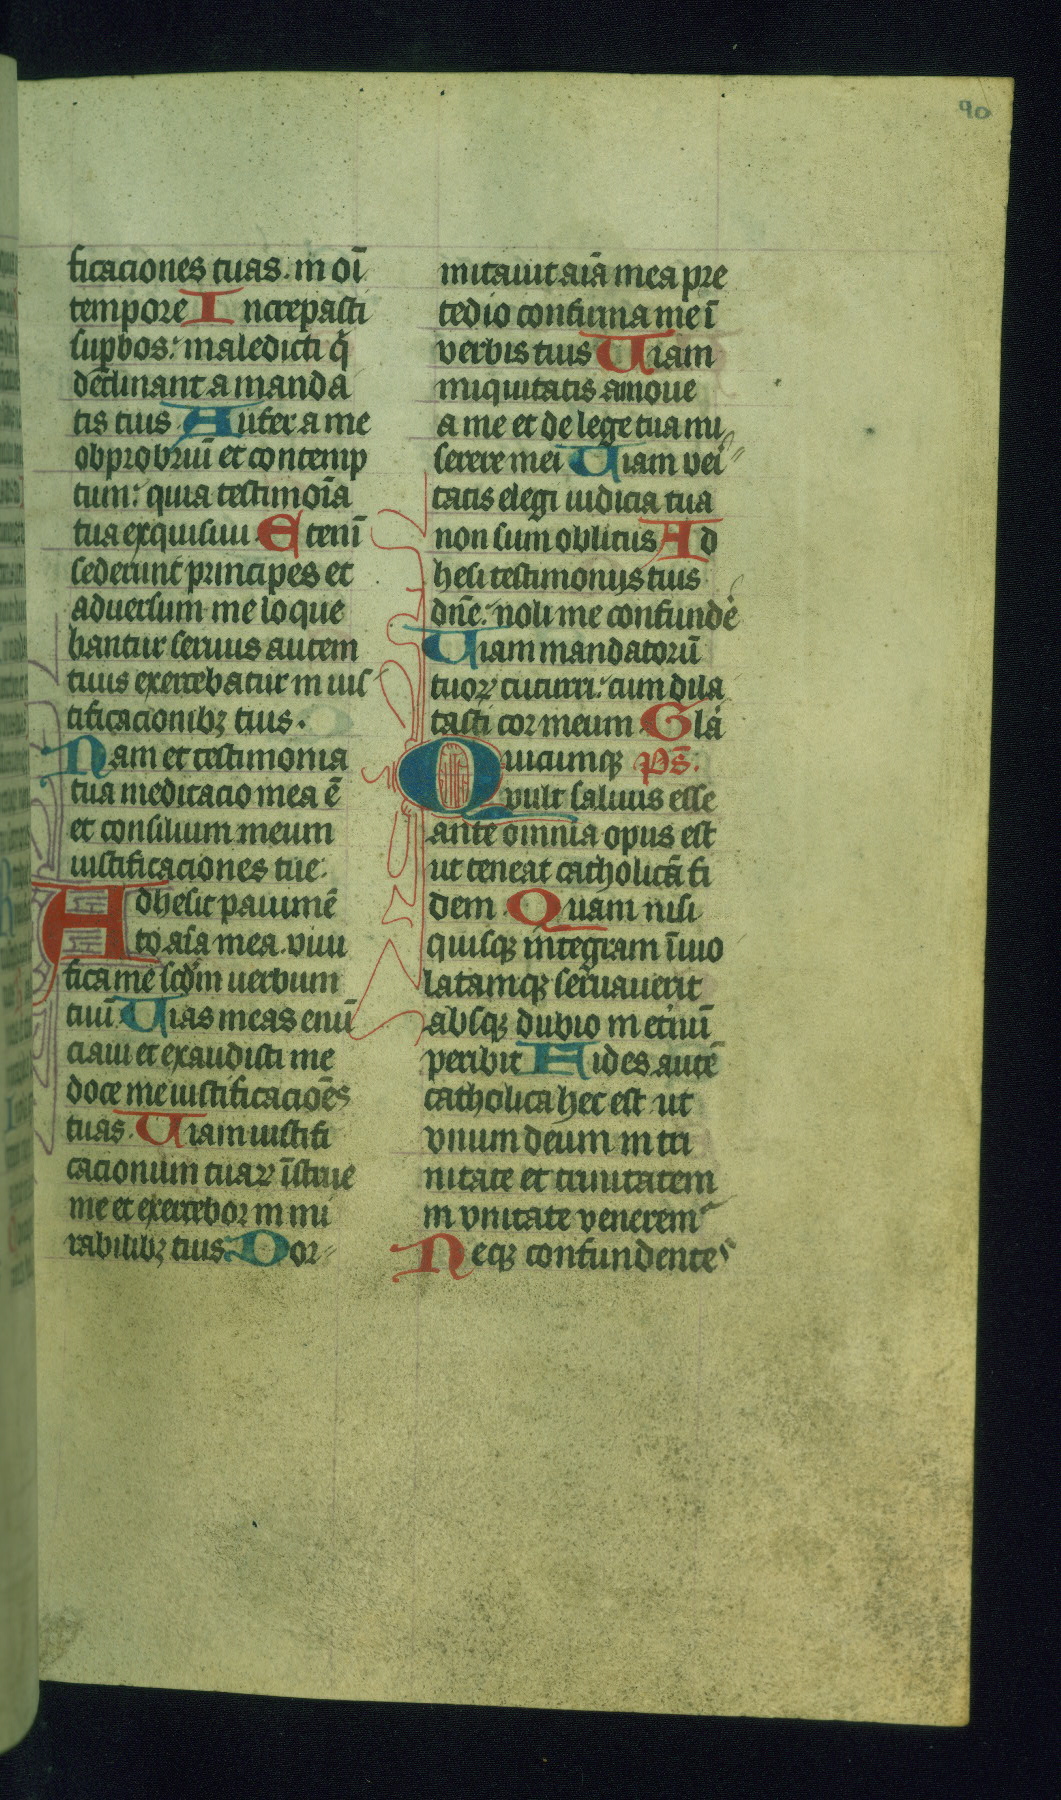 90
ficaciones tuas. in oī
tempore Increpasti
suꝑbos: maledicti q̄
declinant a manda
tis tuis Aufer a me
obprobriū et contemp
tum: quia testimoīa
tua exquisiui Etenī
sederunt principes et
aduersum me loque
bantur seruus autem
tuus exercebatur in ius
tificacionibꝫ tuis.
Nam et testimonia
tua meditacio mea ē
et consilium meum
iustificaciones tue.
Adhesit pauimē
to aīa mea. viui
fica me scdm uerbum
tuū Uias meas enū
ciaui et exaudisti me
doce me iustificacōes
tuas. Uiam iustifi
cacionum tuaꝝ īstrue
me et exercebor in mi
rabilibꝫ tuis. Dor
mitauit aīa mea pre
tedio confirma me ī
verbis tuis Uiam
iniquitatis amoue
a me et de lege tua mi
serere mei Uiam veri
tatis elegi iudicia tua
non sum oblitus Ad
hesi testimonijs tuis
dn̄e: noli me confunde
Uiam mandatorū
tuoꝝ cucurri: cum dila
tasti cor meum Gla
Quicumqꝫ Ps̄.
vult saluus esse
ante omnia opus est
ut teneat catholicā fi
dem Quam nisi
quisqꝫ integram īuio
latamqꝫ seruauerit
absqꝫ dubio in eternū
peribit Fides autē
catholica hec est ut
vnum deum in tri
nitate et trinitatem
in vnitate venerem
Neqꝫ confundentes